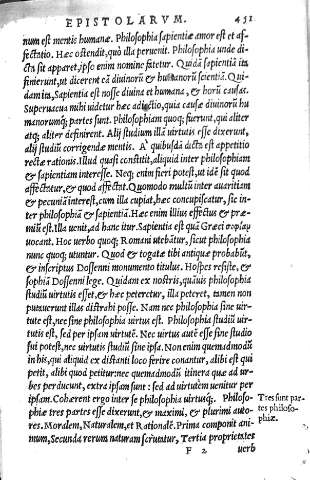 EPISTOLARVM. 451
num est mentis humanæ. Philosophia sapientiæ amor est et af-
fectatio. Hæc ostendit, quò illa peruenit. Philosophia unde di-
cta sit apparet, ipso enim nomine fatetur. Quidã sapientiã ita
finierunt, ut dicerent eã diuinorũ & humanorũ scientiã. Qui-
dam ita, Sapientia est nosse diuina et humana, & horũ causas.
Superuacua mihi uidetur hæc adiectio, quia causæ diuinorũ hu
manorumq; partes sunt. Philosophiam quoq; fuerunt, qui aliter
atq; aliter definirent. Alij studium illã uirtutis esse dixerunt,
alij studiũ corrigendæ mentis. A' quibusdã dicta est appetitio
rectæ rationis. Illud quasi constitit, aliquid inter philosophiam
& sapientiam interesse. Neq; enim fieri potest, ut idẽ sit quod
affectatur, & quod affectat. Quomodo multũ inter auaritiam
& pecuniã interest, cum illa cupiat, hæc concupiscatur, sic in-
ter philosophiã & sapientiã. Hæc enim illius effectus & præ-
miũ est. Illa uenit, ad hanc itur. Sapientia est quã Græci σοφίαν
uocant. Hoc uerbo quoq; Romani utebãtur, sicut philosophia
nunc quoq; utuntur. Quod & togatæ tibi antiquæ probabũt,
& inscriptus Dossenni monumento titulus. Hospes resiste, &
sophiã Dossenni lege. Quidam ex nostris, quãuis philosophia
studiũ uirtutis esset, & hæc peteretur, illa peteret, tamen non
putauerunt illas distrahi posse. Nam nec philosophia sine uir-
tute est, nec sine philosophia uirtus est. Philosophia studiũ uir-
tutis est, sed per ipsam uirtutẽ. Nec uirtus autẽ esse sine studio
sui potest, nec uirtutis studiũ sine ipsa. Non enim quemadmodũ
in his, qui aliquid ex distanti loco ferire conantur, alibi est qui
petit, alibi quod petitur: nec quemadmodũ itinera quæ ad ur-
bes perducunt, extra ipsam sunt: sed ad uirtutem uenitur per
ipsam. Cohærent ergo inter se philosophia uirtusq;. Philoso-
phiæ tres partes esse dixerunt, & maximi, & plurimi auto-
res. Moralem, Naturalem, & Rationalẽ. Prima componit ani-
mum, Secunda rerum naturam scrutatur, Tertia proprietates
F 2 uerb
Tres sunt par-
tes philoso-
phiæ.